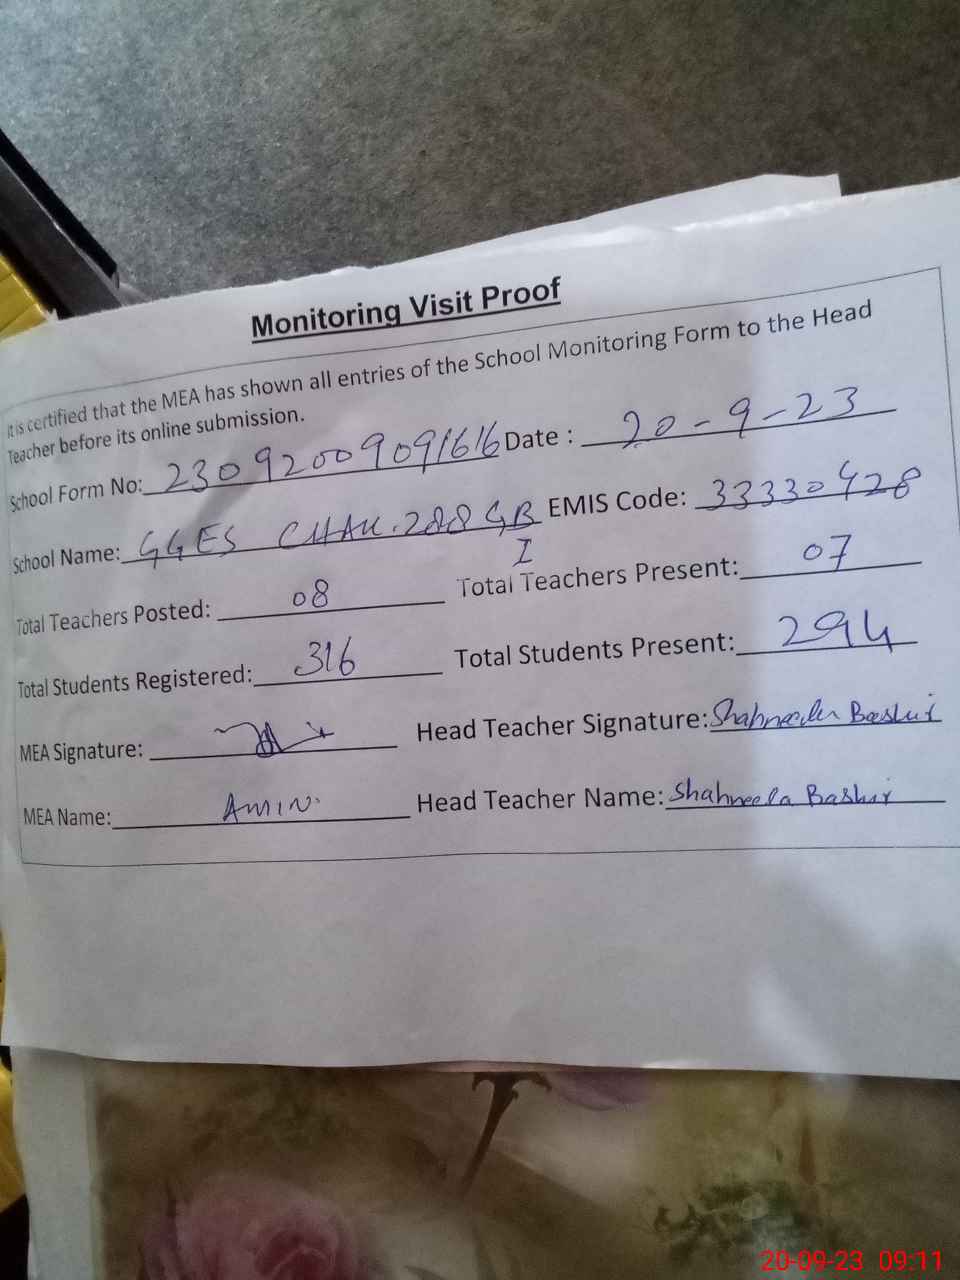 Monitoring Visit Proof
It is certified that the MEA has shown all entries of the School Monitoring Form to the Head
Teacher before its online submission.
School Form No: 23092009091616 Date : 20-9-23
School Name: GGES CHAK.288 GB I EMIS Code: 33330428
Total Teachers Posted: 08 Total Teachers Present: 07
Total Students Registered: 316 Total Students Present: 294
MEA Signature: Head Teacher Signature: Shahneela Bashir
MEA Name: AMIN. Head Teacher Name: Shahneela Bashir
20-09-23 09:11